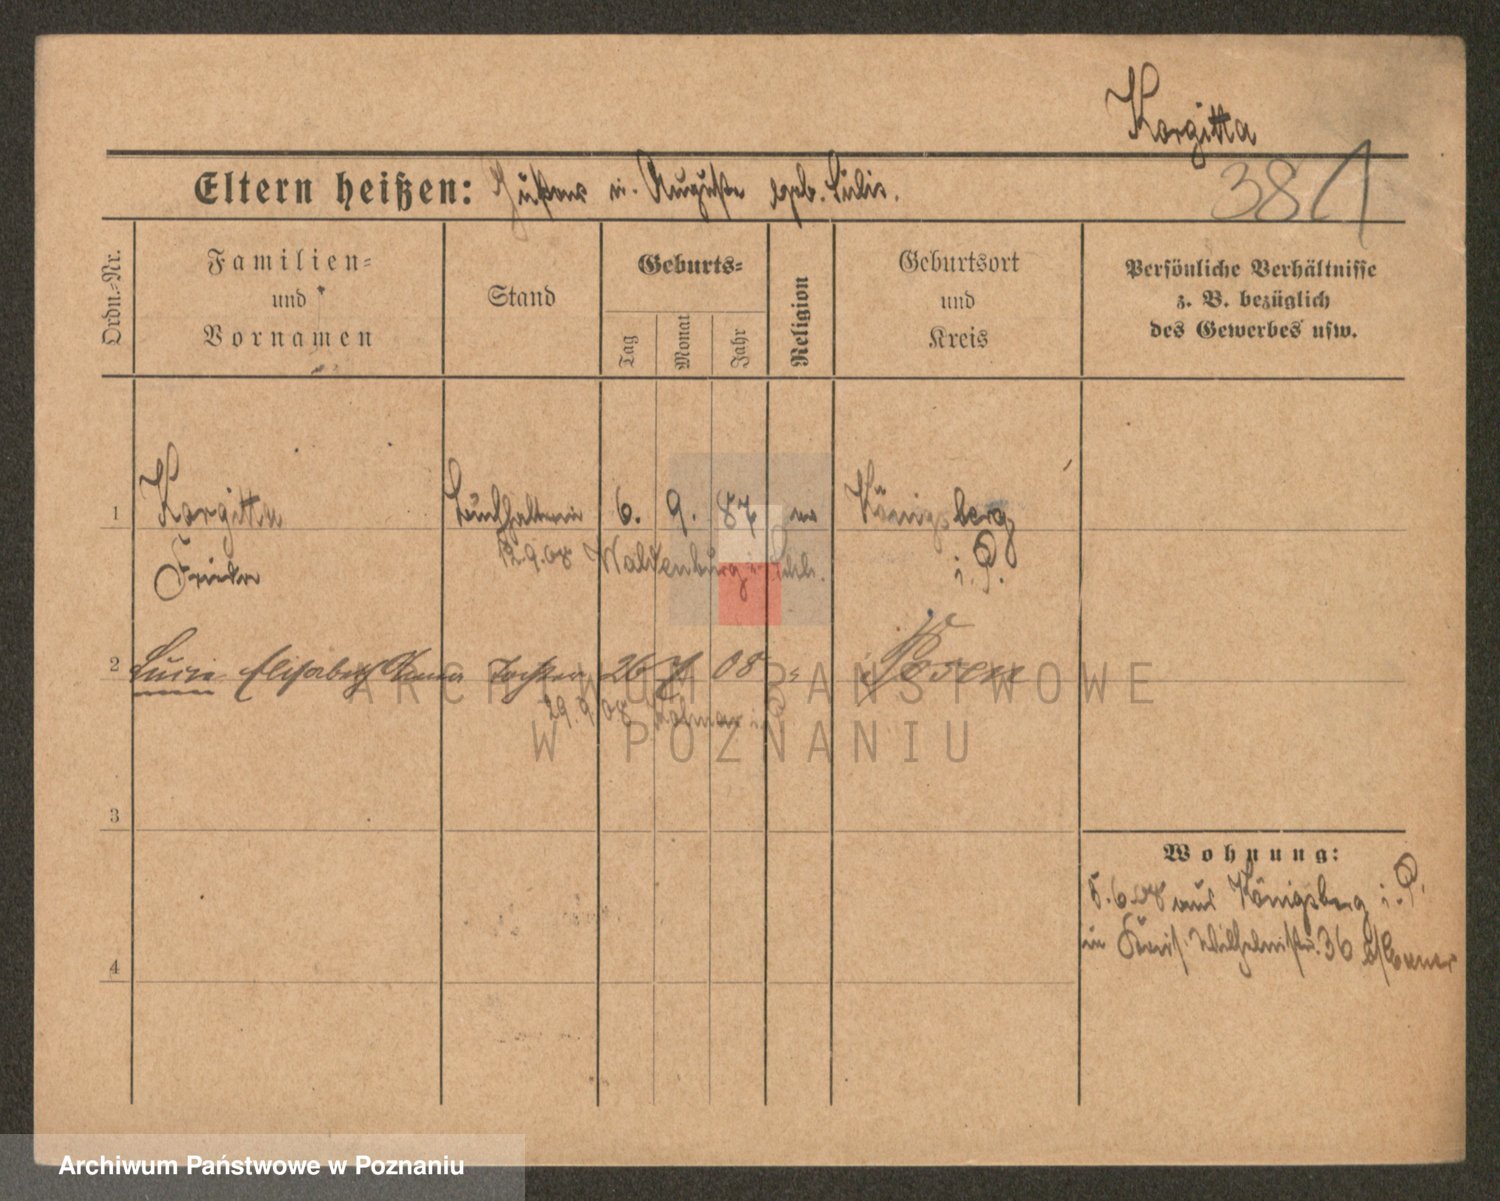 Korgitta
Eltern heißen: Gustav u. Auguste geb.
381
Ordn.-Nr.
Familien-
und
Vornamen
Stand
Geburts-
Tag
Monat
Jahr
Religion
Geburtsort
und
Kreis
Persönliche Verhältnisse
z. B. bezüglich
des Gewerbes usw.
1 Korgitta Buchhalterin 6. 9. 87 ev Königsberg
12.9.08 Waldenburg i. Schl.
Frieda i. P.
2 Lucie Elisabeth Anna Tochter 26 7 08 " Posen
29.9.08 Kolmar i. P.
ARCHIWUM PAŃSTWOWE
W POZNANIU
3
Wohnung:
5.6.08 aus Königsberg i. P.
in Wilhelmstr. 36
4
Archiwum Państwowe w Poznaniu